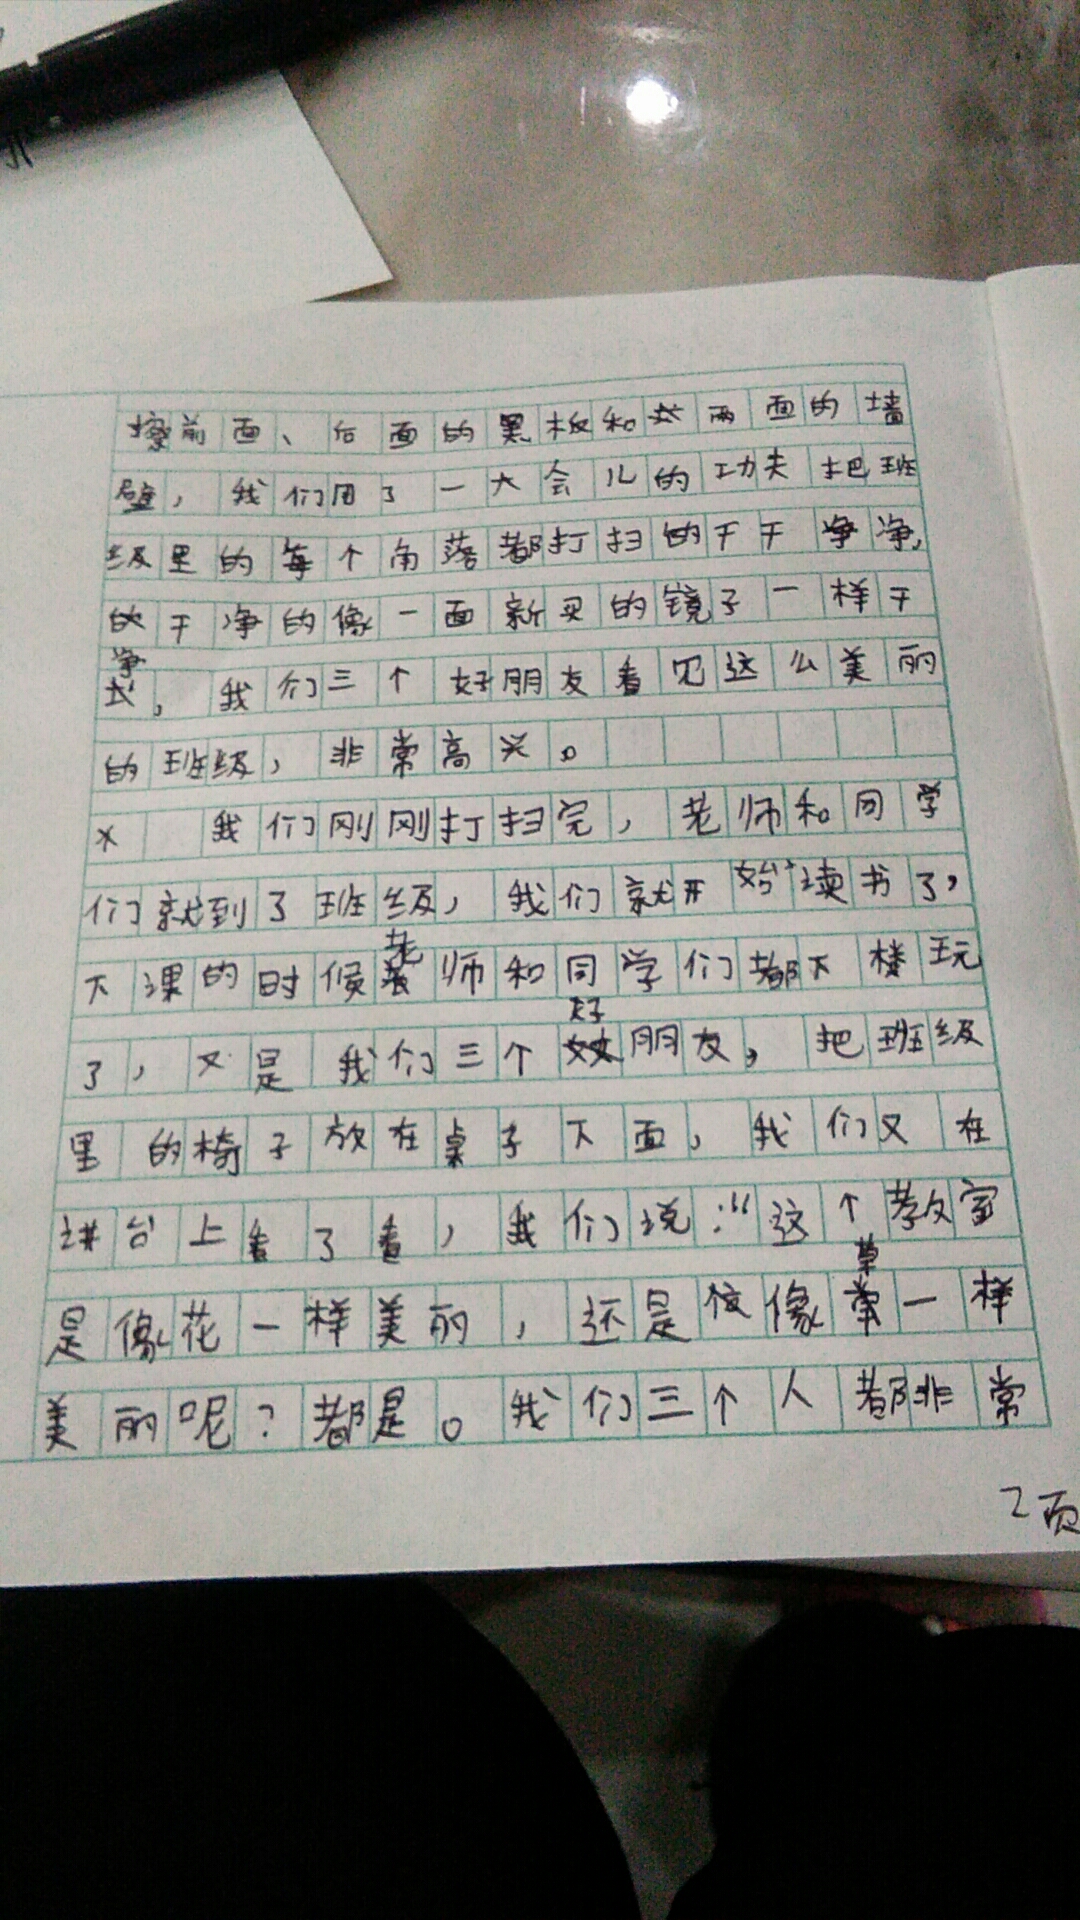 擦前面、后面的黑板和两面的墙
壁，我们用了一大会儿的功夫把班
级里的每个角落都打扫的干干净净，
的干净的像一面新买的镜子一样干
净，我们三个好朋友看见这么美丽
的班级，非常高兴。
我们刚刚打扫完，老师和同学
们就到了班级，我们就开始读书了，
下课的时候老师和同学们都下楼玩
了，又是我们三个好朋友，把班级
里的椅子放在桌子下面，我们又在
讲台上看了看，我们说：“这个教室
是像花一样美丽，还是像草一样
美丽呢？都是。我们三个人都非常
2页